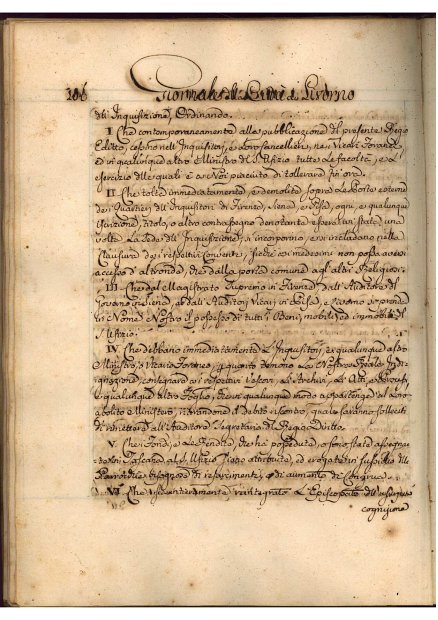 106 Giornale di Città di Livorno
di Inquisizione, Ordinando.
I Che contemporaneamente alla pubblicazione del presente Regio
Editto, cessino nell' Inquisitori, e loro Cancellieri, nei Vicari Foranei,
ed in qualunque altro Ministro del S. Ufizio tutte le facoltà, e l'
esercizio delle quali è a Noi piaciuto di tollerare fin'ora.
II Che tolta immediatamente, e demolita, sopra le Porte esterne
dei Quartieri dell' Inquisitori di Firenze, Siena, e Pisa, ogni, e qualunque
Iscrizione, titolo, o altro contrassegno denotante essere un' stata una
volta la Sede dell' Inquisizione, si incorporino, e si includano nella
Clausura dei respettivi Conventi, sicchè ai medesimi non possa aversi
accesso d'altronde, che dalla porta comune agl' altri Religiosi.
III Che dal Magistrato Supremo in Firenze, dall' Auditore del
Governo in Siena, e dall' Auditori Vicari in Pisa, si
in Nome Nostro il possesso di tutti i Beni, mobili, ed immobili del
S. Ufizio.
IV Che debbano immediatamente l' Inquisitori, e qualunque altro
Ministro, e Vicario Foraneo, per quanto temono la Nostra Reale Indi-
gnazione, consegnare ai respettivi l' Archivi, le
e qualunque altro Foglio, che in qualunque modo appartenga al loro
abolito Ministero, ritirandone il debito riscontro, quali saranno solleciti
di rimettere all' Auditore Segretario del Regio Diritto.
V Che i Fondi, e le Rendite, che ha possedute, o sono state assegna-
te in Toscana al S. Ufizio siano attribuite, ed erogate in sussidio delle
Parrocchie bisognose di risarcimenti, o di aumento di Congrua.
VI Che intieramente reintegrato l' Episcopato dell'
cognizione